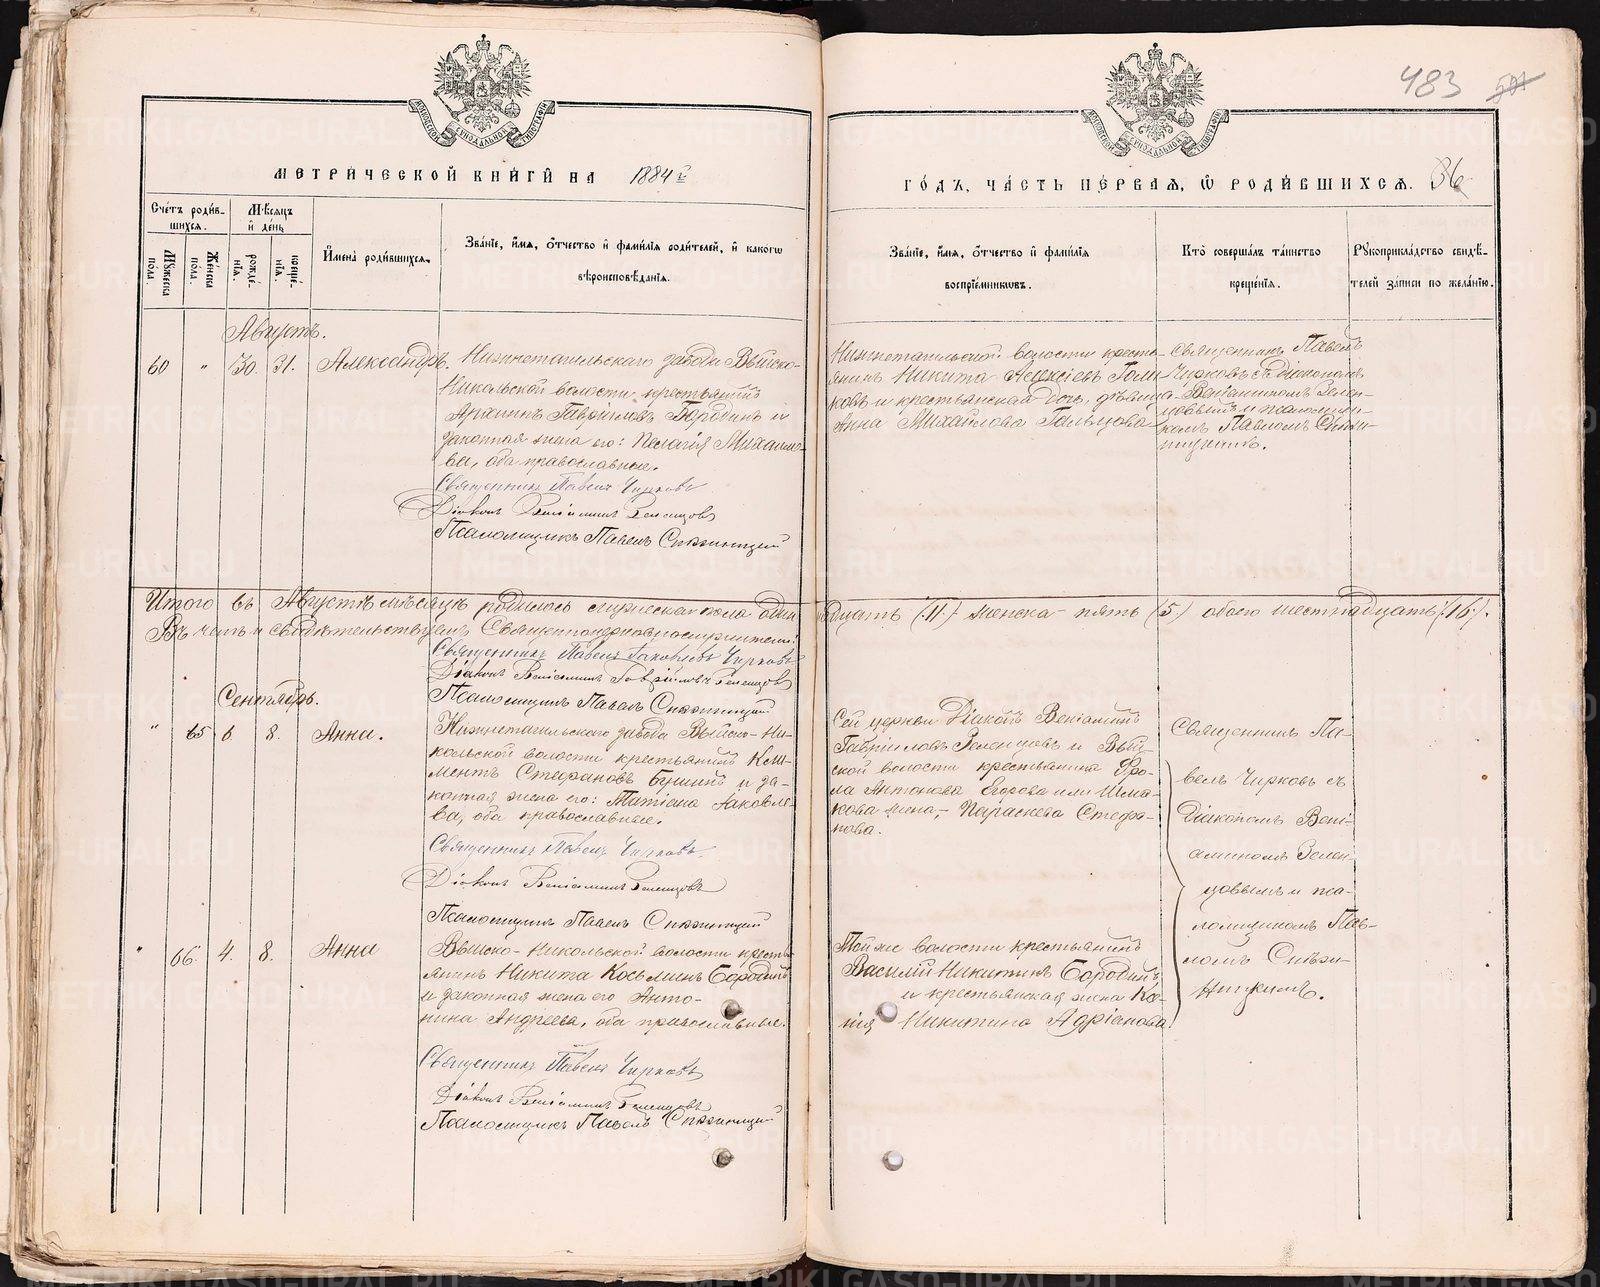 483
МОСКОВСКОЙ СѴНОДАЛЬНОЙ ТИПОГРАФІИ
МОСКОВСКОЙ СѴНОДАЛЬНОЙ ТИПОГРАФІИ
МЕТРИ́ЧЕСКОЙ КНИ́ГИ НА 1884 й
ГО́ДЪ, ЧА́СТЬ ПЕ́РВАЯ, Ѡ҆ РОДИ́ВШИХСЯ. 36
Сче́тъ роди́в-
шихся.
Мꙋ́жеска по́ла.
Же́нска по́ла.
Мѣ́сяцъ
и҆ де́нь
рожде́нїя.
креще́нїя.
И҆мена̀ роди́вшихся.
Зва́нїе, и҆́мя, ѻ҆́тчество и҆ фами́лїя роди́телей, и҆ како́гѡ
вѣроисповѣ́данїя.
Зва́нїе, и҆́мя, ѻ҆́тчество и҆ фами́лїя
воспрїе́мникѡвъ.
Кто̀ соверша́лъ та́инство
креще́нїя.
Рꙋкоприкла́дство свидѣ́-
телей за́писи по жела́нїю.
Августъ.
60 " 30. 31. Александръ.
Нижнетагильскаго завода Выйско-
Никольской волости крестьянинъ
Архипъ Гавриловъ Бородинъ и
законная жена его: Пелагія Михайло-
ва, оба православные.
Священникъ Павелъ Чирковъ
Діаконъ Веніаминъ Зеленцовъ
Псаломщикъ Павелъ
Нижнетагильской волости кресть-
янинъ Никита Алексіевъ Голи-
ковъ и крестьянская дочь, дѣвица
Анна Михайлова Гальцова
Священникъ Павелъ
Чирковъ съ діакономъ
Веніаминомъ Зелен-
цовымъ и псаломщи-
комъ Павломъ
Итого въ Августѣ мѣсяцѣ родилось мужеска пола один-
надцать (11) женска пять (5) обоего шестнадцать (16).
Въ чемъ и свидѣтельствуемъ Священноцерковнослужители:
Священникъ Павелъ Іаковлевъ Чирковъ
Діаконъ Веніаминъ Гавріиловъ Зеленцовъ
Псаломщикъ Павелъ
Сентябрь.
" 65 6 8. Анна.
Нижнетагильскаго завода Выйско-Ни-
кольской волости крестьянинъ Кли-
ментъ Стефановъ и за-
конная жена его: Татіана Іаковле-
ва, оба православные.
Священникъ Павелъ Чирковъ
Діаконъ Веніаминъ Зеленцовъ
Псаломщикъ Павелъ
Сей церкви Діаконъ Веніаминъ
Гавріиловъ Зеленцовъ и Вый-
ской волости крестьянина Фро-
ла Антонова Егорова или Шма-
кова жена, Параскева Стефа-
нова.
Священникъ Па-
велъ Чирковъ съ
Діакономъ Вені-
аминомъ Зелен-
цовымъ и пса-
ломщикомъ Пав-
ломъ
" 66 4. 8. Анна
Выйско-Никольской волости кресть-
янинъ Никита Косьминъ Бородинъ
и законная жена его Анто-
нина Андреева, оба православные.
Священникъ Павелъ Чирковъ
Діаконъ Веніаминъ Зеленцовъ
Псаломщикъ Павелъ
Той же волости крестьянинъ
Василій Никитинъ Бородинъ
и крестьянская жена Ксе-
нія Никитина Адріанова.